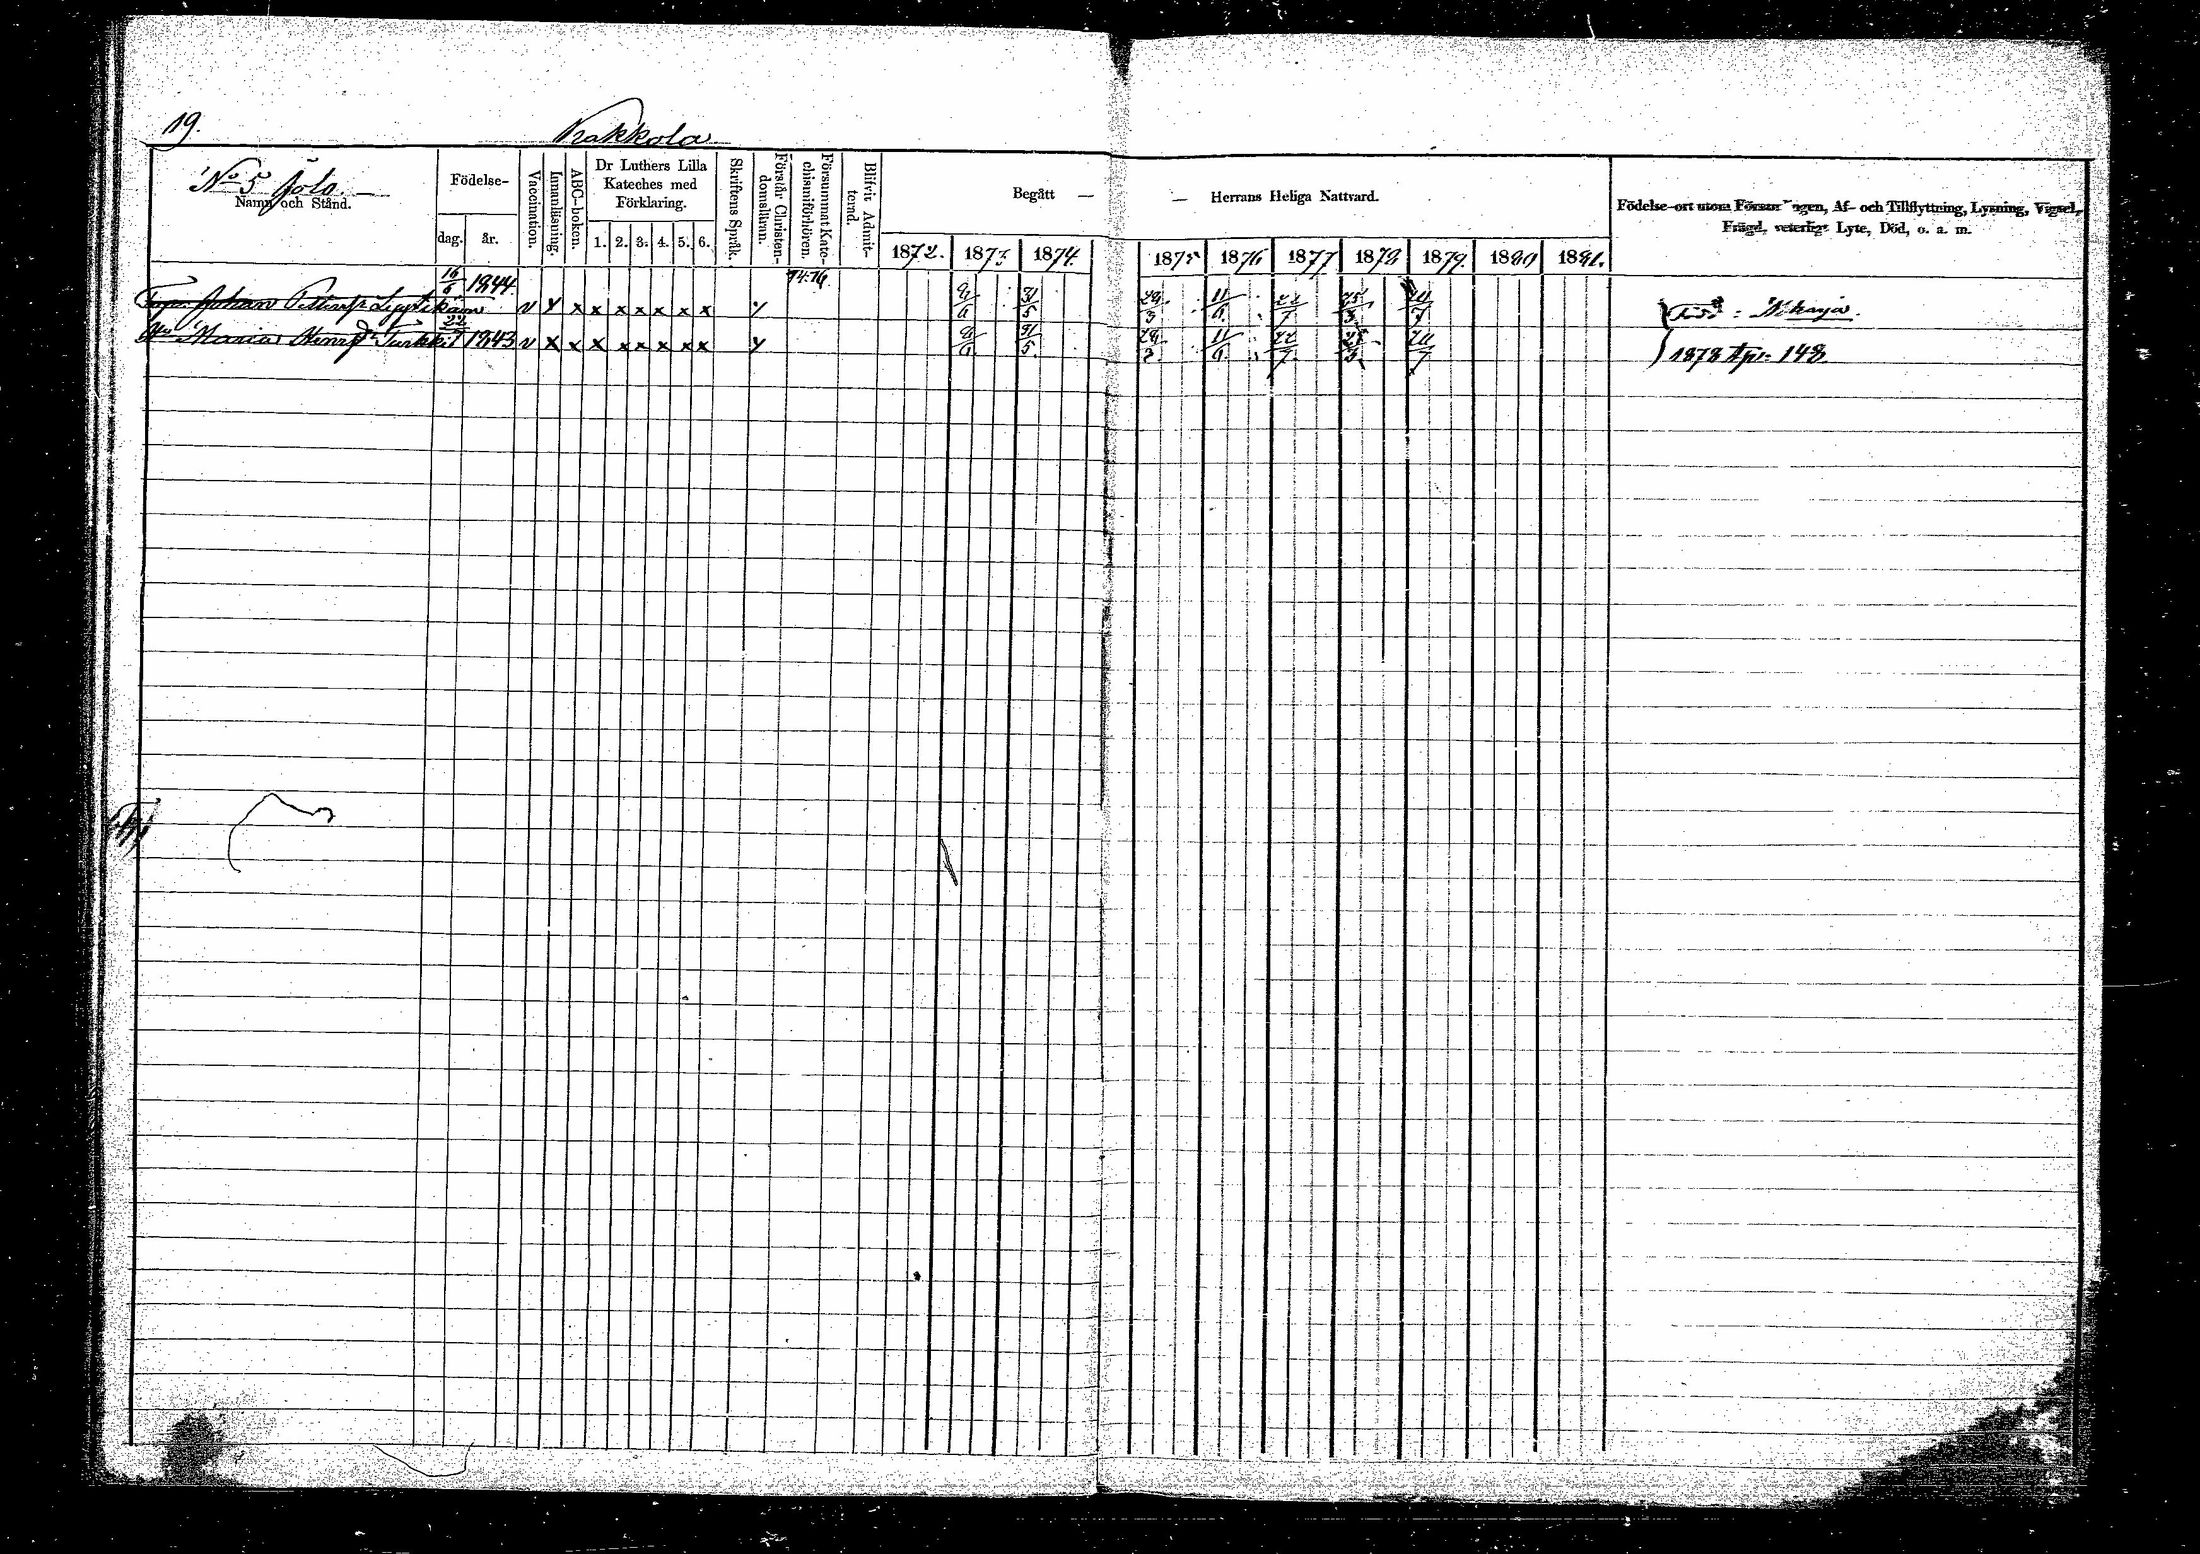 19. Kakkola
No 5 Jolo.
Namn och Stånd.
Födelse-
dag. år.
Vaccination.
Innanläsning.
ABC-boken.
Dr Luthers Lilla
Kateches med
Förklaring.
1. 2. 3. 4. 5. 6.
Skriftens Språk.
Förstår Christen-
domsläran.
Försummat Kate-
chismiförhören.
Blifvit Admit-
terad.
Begått — — Herrans Heliga Nattvard.
1872. 1873. 1874. 1875 1876 1877 1878 1879. 1880 1881.
Födelse-ort utom Församlingen, Af- och Tillflyttning, Lysning, Vigsel,
Frägd, veterligt Lyte, Död, o. a. m.
16/6 1844. 74.76.
Johan v x x x x x x x x 9/6 31/5 29/3 11/6 22/7 25/3 20/7
Maria 22/7 1843 v x x x x x x x x 9/6 31/5 29/3 11/6 22/7 25/3 20/7
1878 148.